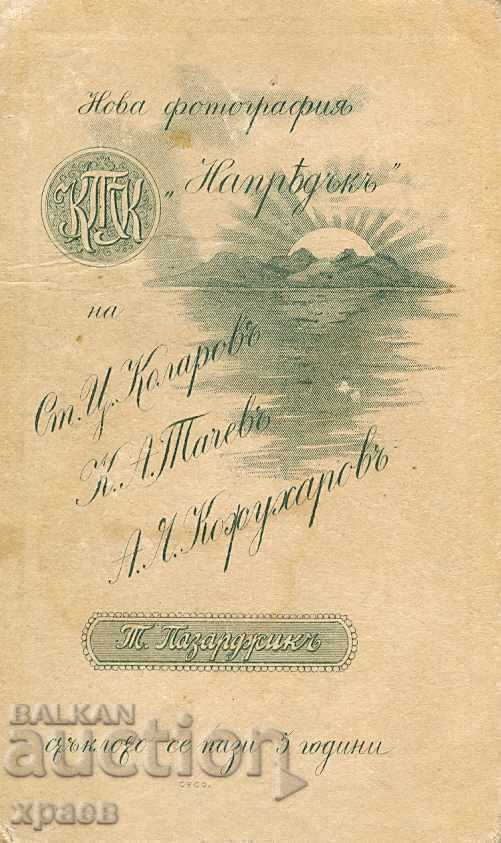 Нова фотография
КТК
„Напрѣдъкъ"
на
Ст. Ц. Коларовъ
К. А. Тачевъ
А. Я. Кожухаровъ
Т. Пазарджикъ
BALKAN
auction
стъклото се пази 5 години
храев